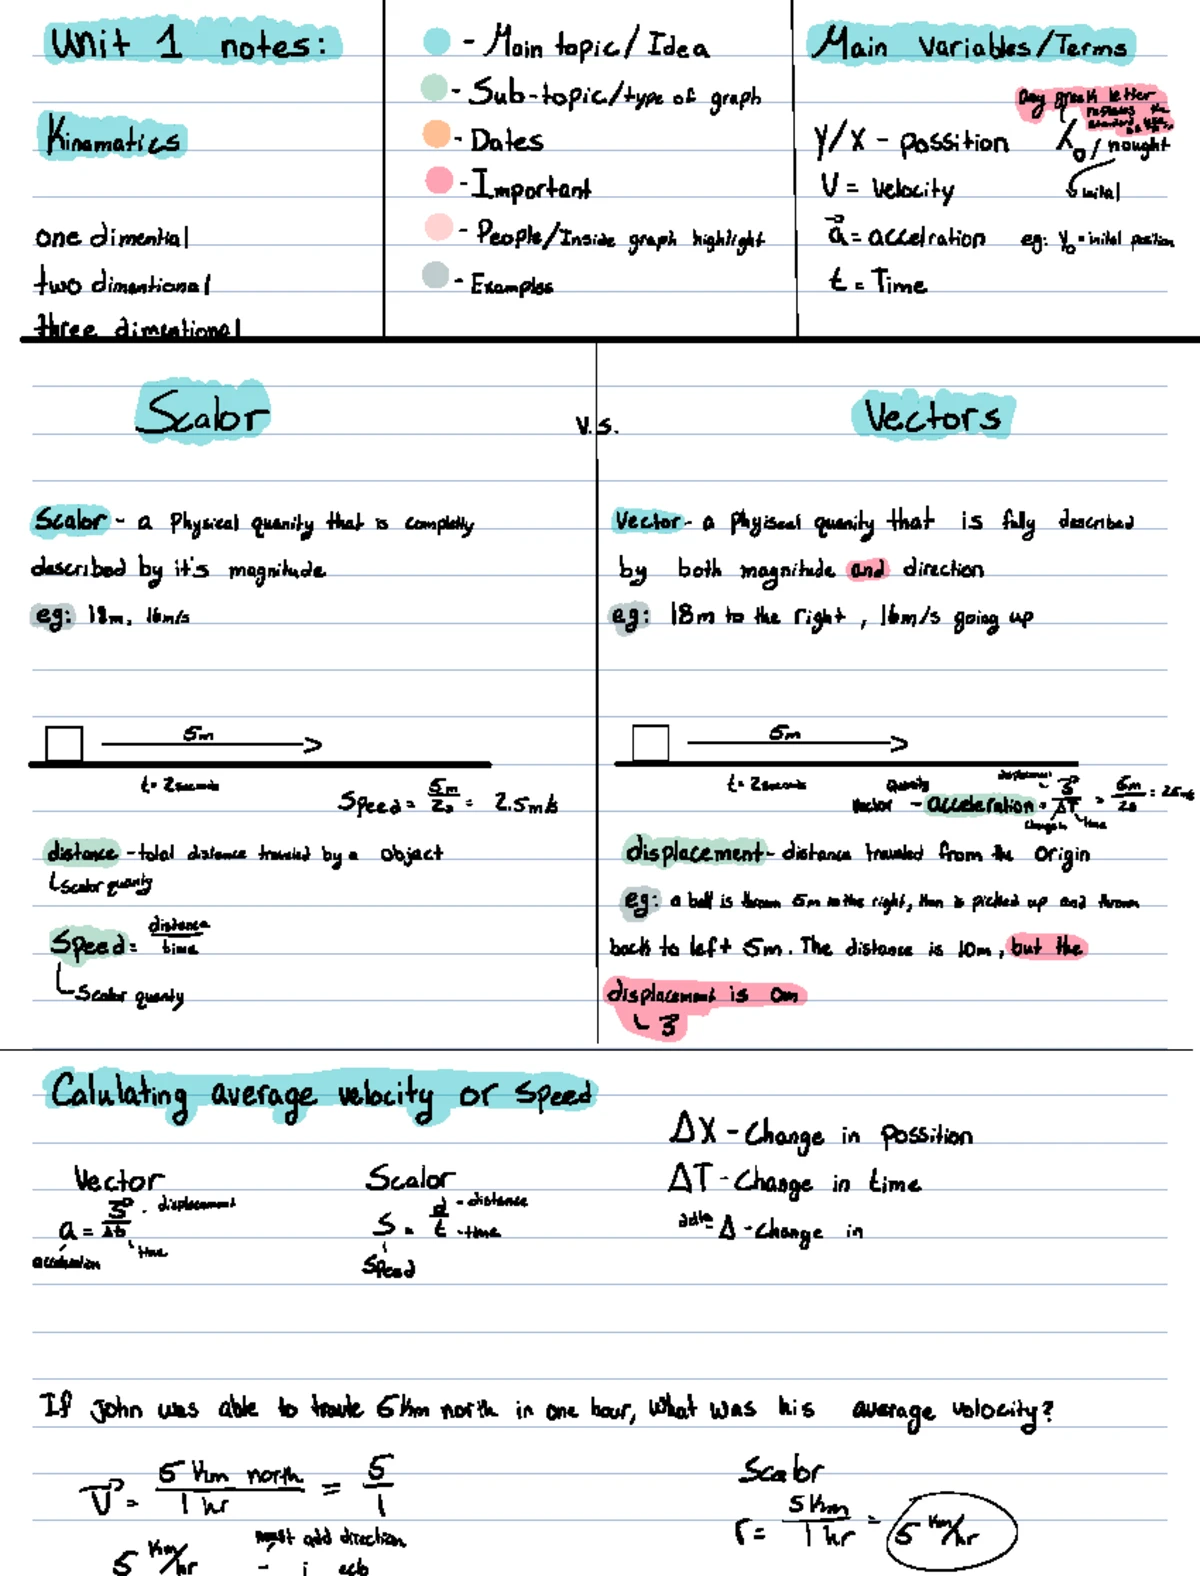 Unit 1 notes:
Kinamatics
one dimential
two dimentional
three dimentional
- Main topic/Idea
- Sub-topic/type of graph
- Dates
- Important
- People/Inside graph highlight
- Examples
Main Variables/Terms
Any greek letter
replaces the
standard
Y/X - possition
X₀/nought
V = velocity
inital
a⃗ = accelration
eg: Y₀ = inital position
t = Time
Scalor
V.S.
Vectors
Scalor - a Physical quanity that is completly
described by it's magnitude
eg: 18m, 16m/s
5m
t= 2seconds
Speed = 5m/2s = 2.5m/s
distance - total distance traveled by a object
Scalor quanity
Speed = distance/time
Scalor quanity
Vector - a phyiscal quanity that is fully described
by both magnitude and direction
eg: 18m to the right, 16m/s going up
5m
t= 2seconds
Quanity
displacement
Vector - acceleration = s⃗/ΔT = 5m/2s = 2.5m/s
change in time
displacement - distance traveled from the origin
eg: a ball is thrown 5m to the right, then is picked up and thrown
back to left 5m. The distance is 10m, but the
displacement is 0m
s⃗
Calulating average velocity or speed
Vector
a = s⃗/Δt
displacement
time
acceleration
Scalor
S = d/t
- distance
- time
Speed
ΔX - Change in possition
ΔT - Change in time
Δ - Change in
If john was able to travle 5km north in one hour, what was his average velocity?
V⃗ = 5 km north/1 hr = 5/1
5 km/hr
must add direction
Scalor
r = 5km/1 hr = 5 km/hr